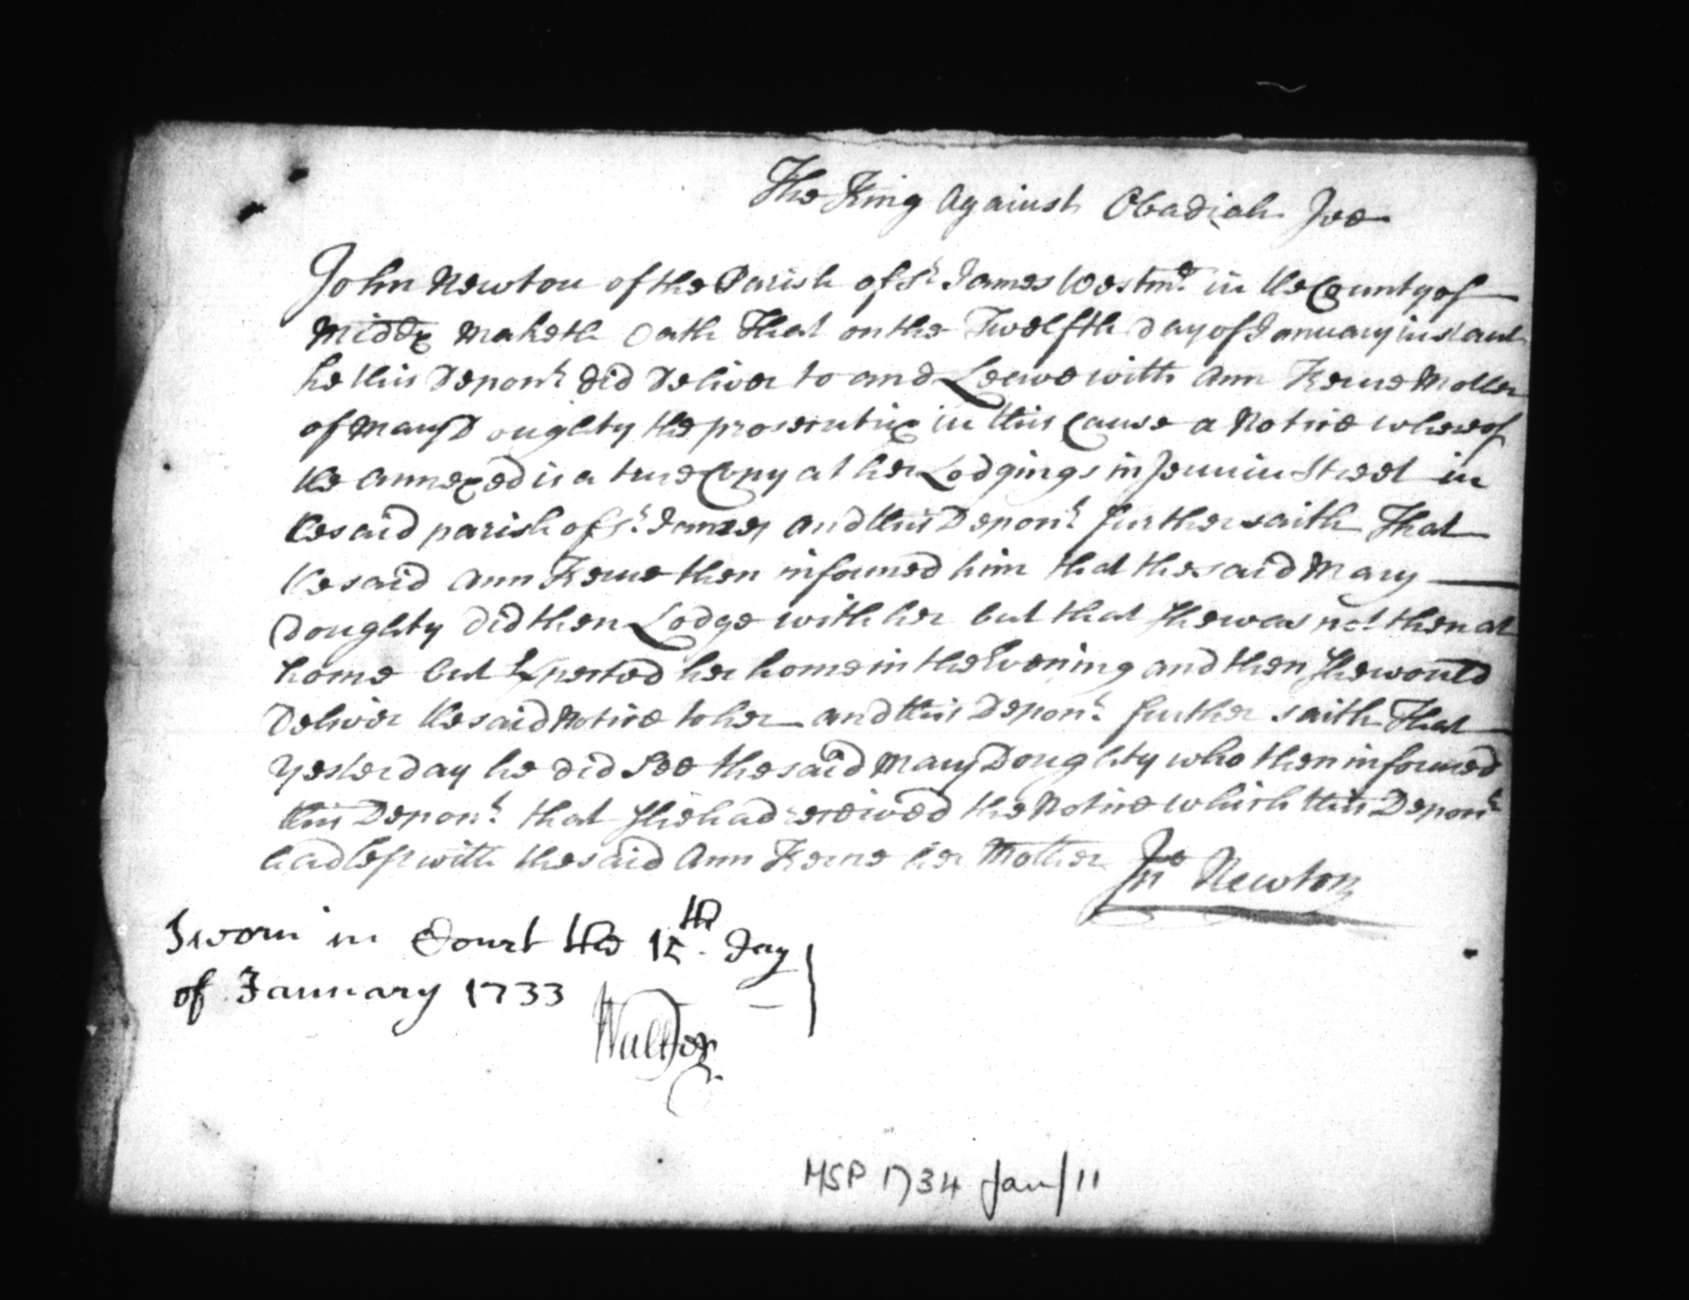 The King against Obadiah Joe
John Newton of the Parish of St. James Westmr. in the County of
Middx Maketh Oath That on the Twelfth day of January instant
he this Depont. did Deliver to and Leave with Ann Kerne Mother
of Mary Doughty the prosecutrix in this Cause a Notice whereof
the annexed is a true Copy at her Lodgings in Jermin Street in
the said parish of St. James and this Depont. further saith That
the said Ann Kerne then informed him that the said Mary
Doughty did then Lodge with her but that she was not then at
home but Expected her home in the Evening and then she would
Deliver the said Notice to her and this Depont. further saith That
yesterday he did See the said Mary Doughty who then informed
this Depont. that she had received the Notice which this Depont.
had left with the said Ann Kerne her Mother Jno Newton
Sworn in Court the 15th. Day
of January 1733
MSP 1734 Jan/11